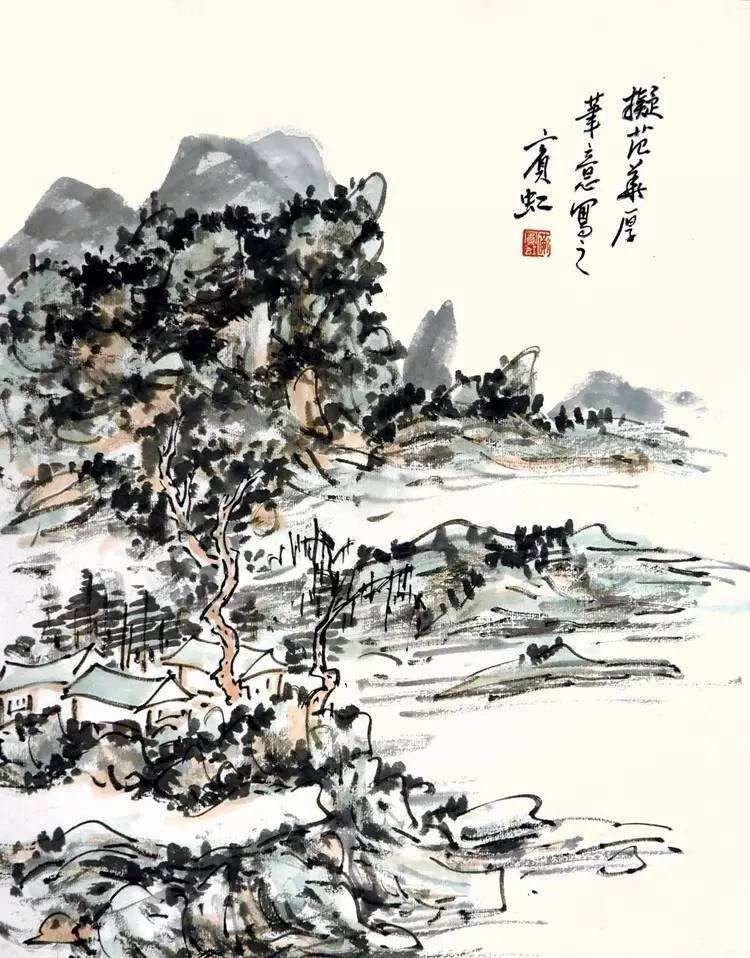 擬范華原
筆意寫之
賓虹